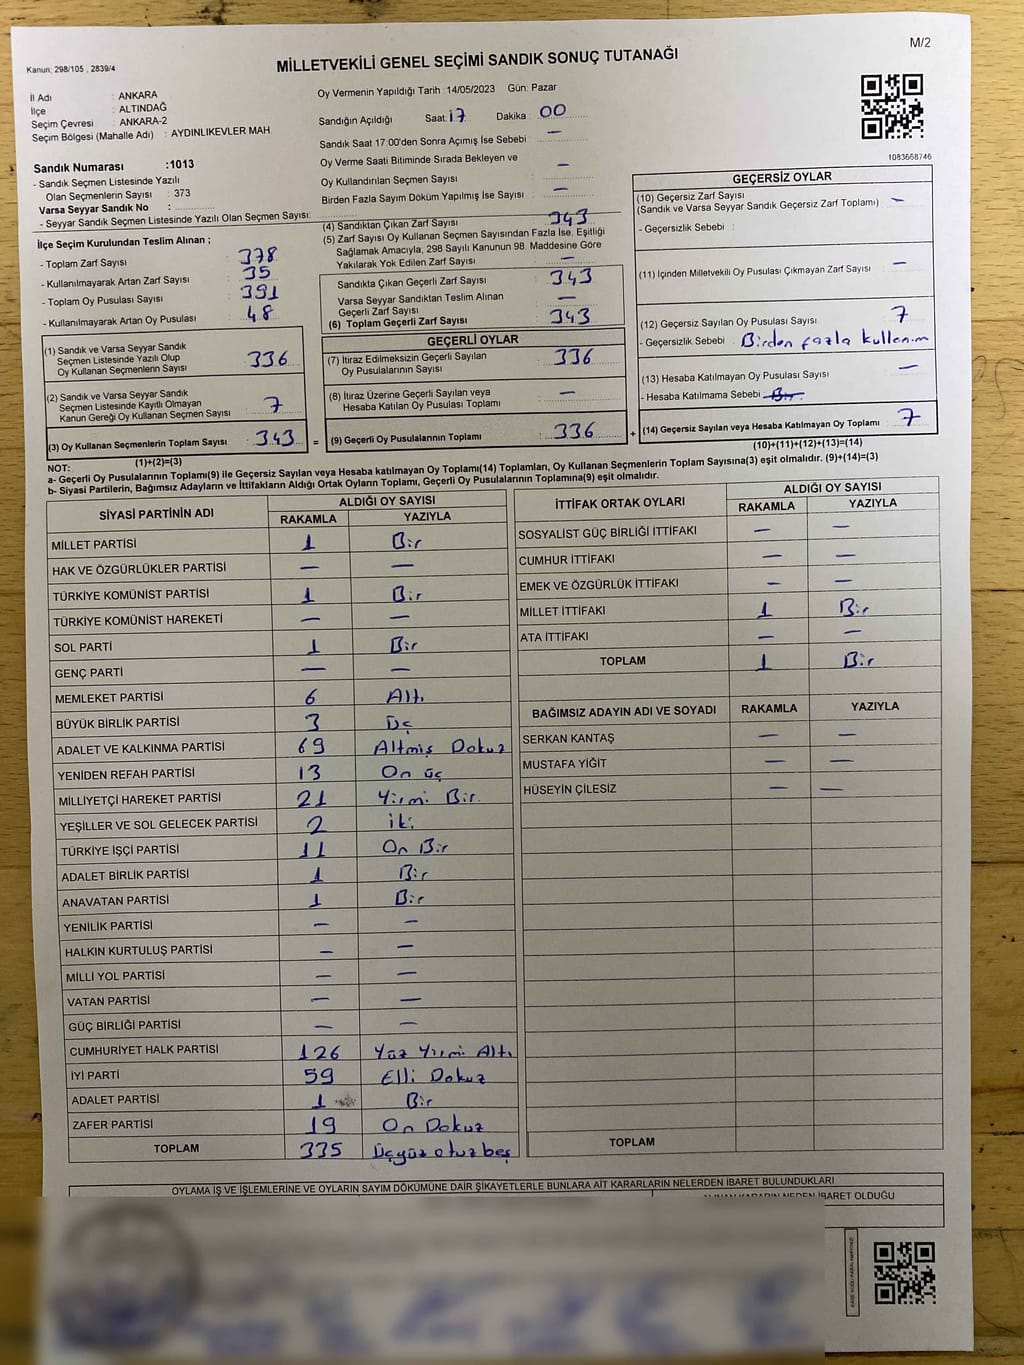 M/2
Kanun: 298/105 , 2839/4
MİLLETVEKİLİ GENEL SEÇİMİ SANDIK SONUÇ TUTANAĞI
İl Adı : ANKARA
İlçe : ALTINDAĞ
Seçim Çevresi : ANKARA-2
Seçim Bölgesi (Mahalle Adı) : AYDINLIKEVLER MAH.
Sandık Numarası :1013
- Sandık Seçmen Listesinde Yazılı
Olan Seçmenlerin Sayısı : 373
Varsa Seyyar Sandık No :
- Seyyar Sandık Seçmen Listesinde Yazılı Olan Seçmen Sayısı:
Oy Vermenin Yapıldığı Tarih :14/05/2023 Gün: Pazar
Sandığın Açıldığı Saat: 17 Dakika 00
Sandık Saat 17:00'den Sonra Açımış İse Sebebi —
Oy Verme Saati Bitiminde Sırada Bekleyen ve
Oy Kullandırılan Seçmen Sayısı —
Birden Fazla Sayım Döküm Yapılmış İse Sayısı —
1083668746
İlçe Seçim Kurulundan Teslim Alınan ;
- Toplam Zarf Sayısı : 378
- Kullanılmayarak Artan Zarf Sayısı : 35
- Toplam Oy Pusulası Sayısı : 391
- Kullanılmayarak Artan Oy Pusulası : 48
(1) Sandık ve Varsa Seyyar Sandık
Seçmen Listesinde Yazılı Olup
Oy Kullanan Seçmenlerin Sayısı : 336
(2) Sandık ve Varsa Seyyar Sandık
Seçmen Listesinde Kayıtlı Olmayan
Kanun Gereği Oy Kullanan Seçmen Sayısı : 7
(3) Oy Kullanan Seçmenlerin Toplam Sayısı : 343
(1)+(2)=(3)
(4) Sandıktan Çıkan Zarf Sayısı : 343
(5) Zarf Sayısı Oy Kullanan Seçmen Sayısından Fazla İse, Eşitliği
Sağlamak Amacıyla, 298 Sayılı Kanunun 98. Maddesine Göre
Yakılarak Yok Edilen Zarf Sayısı : —
Sandıkta Çıkan Geçerli Zarf Sayısı : 343
Varsa Seyyar Sandıktan Teslim Alınan
Geçerli Zarf Sayısı : —
(6) Toplam Geçerli Zarf Sayısı : 343
GEÇERLİ OYLAR
(7) İtiraz Edilmeksizin Geçerli Sayılan
Oy Pusulalarının Sayısı : 336
(8) İtiraz Üzerine Geçerli Sayılan veya
Hesaba Katılan Oy Pusulası Toplamı : —
= (9) Geçerli Oy Pusulalarının Toplamı : 336
GEÇERSİZ OYLAR
(10) Geçersiz Zarf Sayısı
(Sandık ve Varsa Seyyar Sandık Geçersiz Zarf Toplamı) : —
- Geçersizlik Sebebi :
(11) İçinden Milletvekili Oy Pusulası Çıkmayan Zarf Sayısı : —
(12) Geçersiz Sayılan Oy Pusulası Sayısı : 7
- Geçersizlik Sebebi : Birden fazla kullanım
(13) Hesaba Katılmayan Oy Pusulası Sayısı : —
- Hesaba Katılmama Sebebi : Bir
+ (14) Geçersiz Sayılan veya Hesaba Katılmayan Oy Toplamı : 7
(10)+(11)+(12)+(13)=(14)
NOT:
a- Geçerli Oy Pusulalarının Toplamı(9) ile Geçersiz Sayılan veya Hesaba katılmayan Oy Toplamı(14) Toplamları, Oy Kullanan Seçmenlerin Toplam Sayısına(3) eşit olmalıdır. (9)+(14)=(3)
b- Siyasi Partilerin, Bağımsız Adayların ve İttifakların Aldığı Ortak Oyların Toplamı, Geçerli Oy Pusulalarının Toplamına(9) eşit olmalıdır.
SİYASİ PARTİNİN ADI ALDIĞI OY SAYISI
RAKAMLA YAZIYLA
MİLLET PARTİSİ 1 Bir
HAK VE ÖZGÜRLÜKLER PARTİSİ — —
TÜRKİYE KOMÜNİST PARTİSİ 1 Bir
TÜRKİYE KOMÜNİST HAREKETİ — —
SOL PARTİ 1 Bir
GENÇ PARTİ — —
MEMLEKET PARTİSİ 6 Altı
BÜYÜK BİRLİK PARTİSİ 3 Üç
ADALET VE KALKINMA PARTİSİ 69 Altmiş Dokuz
YENİDEN REFAH PARTİSİ 13 On üç
MİLLİYETÇİ HAREKET PARTİSİ 21 Yirmi Bir
YEŞİLLER VE SOL GELECEK PARTİSİ 2 iki
TÜRKİYE İŞÇİ PARTİSİ 11 On Bir
ADALET BİRLİK PARTİSİ 1 Bir
ANAVATAN PARTİSİ 1 Bir
YENİLİK PARTİSİ — —
HALKIN KURTULUŞ PARTİSİ — —
MİLLİ YOL PARTİSİ — —
VATAN PARTİSİ — —
GÜÇ BİRLİĞİ PARTİSİ — —
CUMHURİYET HALK PARTİSİ 126 Yüz Yirmi Altı
İYİ PARTİ 59 Elli Dokuz
ADALET PARTİSİ 1 Bir
ZAFER PARTİSİ 19 On Dokuz
TOPLAM 335 Üçyüz otuz beş
İTTİFAK ORTAK OYLARI ALDIĞI OY SAYISI
RAKAMLA YAZIYLA
SOSYALİST GÜÇ BİRLİĞİ İTTİFAKI — —
CUMHUR İTTİFAKI — —
EMEK VE ÖZGÜRLÜK İTTİFAKI — —
MİLLET İTTİFAKI 1 Bir
ATA İTTİFAKI — —
TOPLAM 1 Bir
BAĞIMSIZ ADAYIN ADI VE SOYADI RAKAMLA YAZIYLA
SERKAN KANTAŞ — —
MUSTAFA YİĞİT — —
HÜSEYİN ÇİLESİZ — —
TOPLAM
OYLAMA İŞ VE İŞLEMLERİNE VE OYLARIN SAYIM DÖKÜMÜNE DAİR ŞİKAYETLERLE BUNLARA AİT KARARLARIN NELERDEN İBARET BULUNDUKLARI
ALINAN KARARIN NEDEN İBARET OLDUĞU